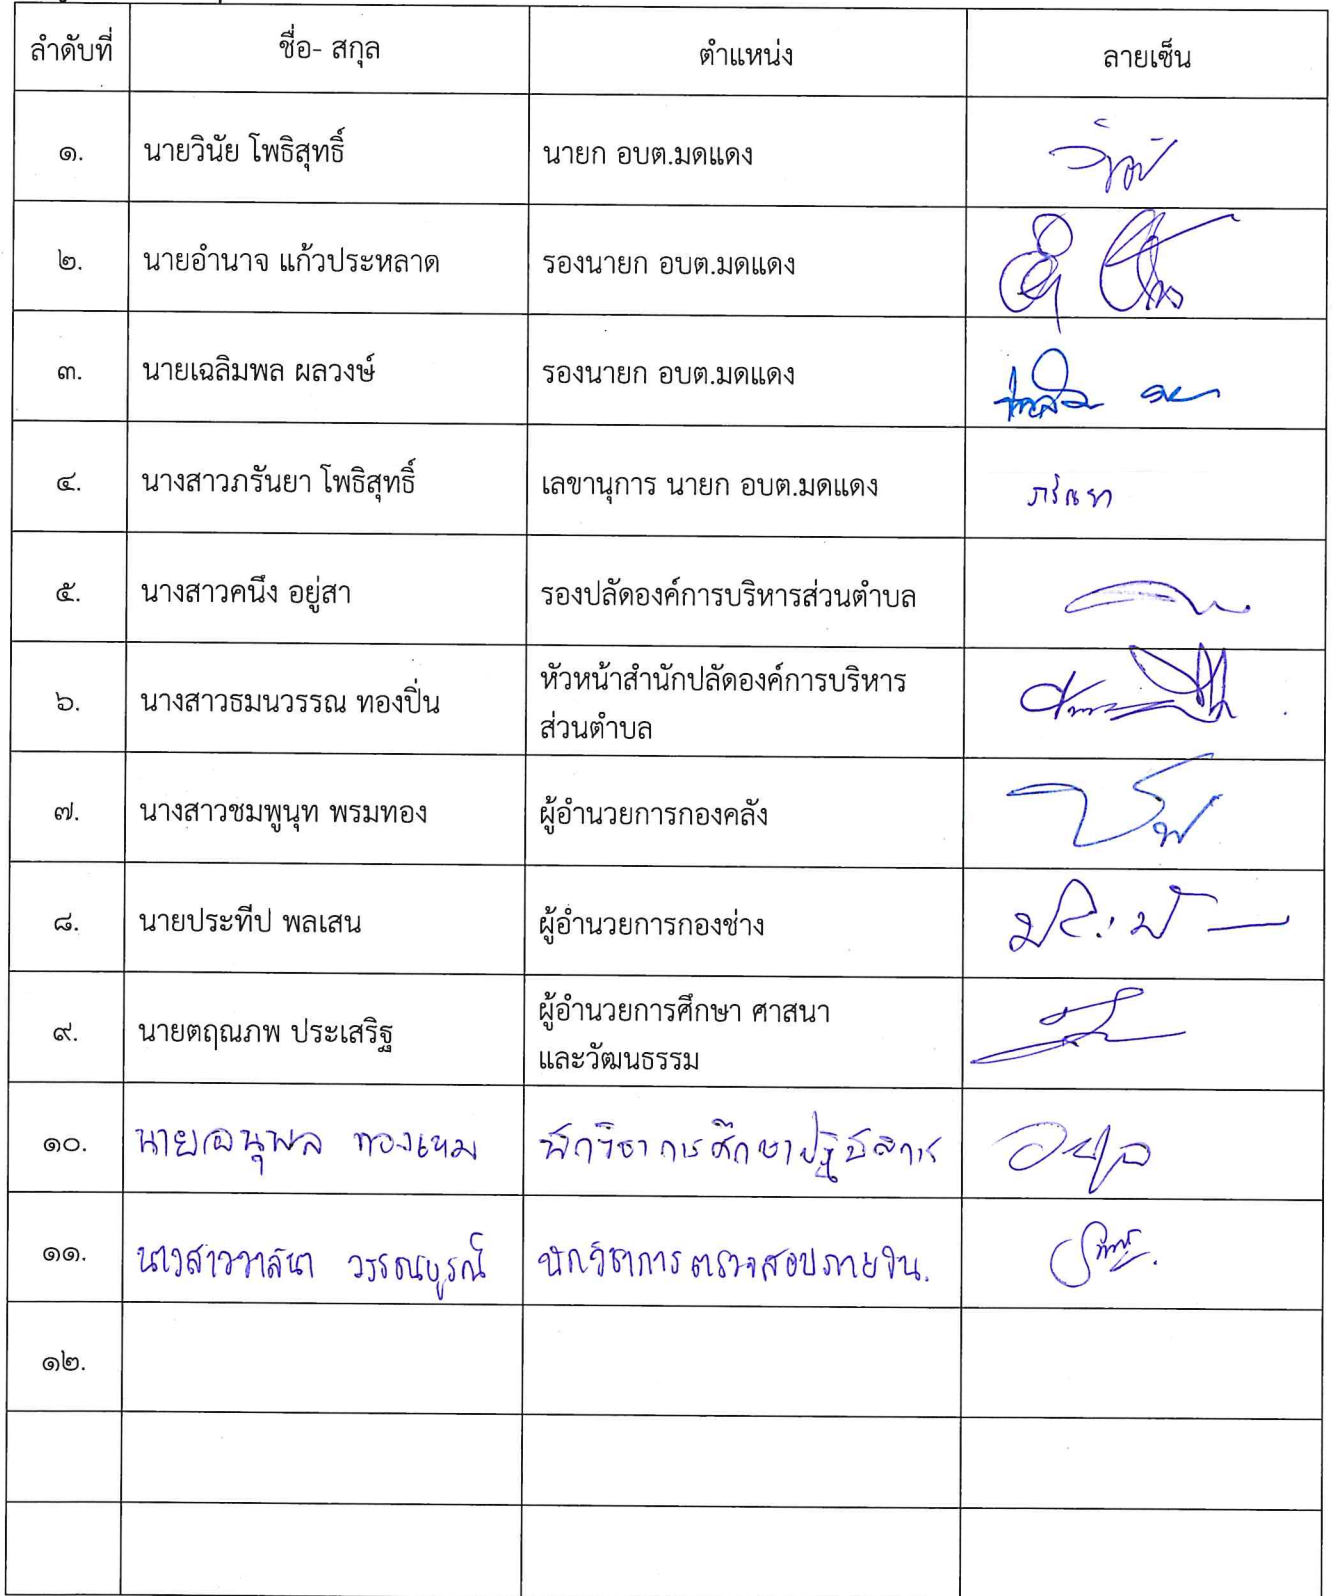 ลำดับที่ ชื่อ- สกุล ตำแหน่ง ลายเซ็น
๑. นายวินัย โพธิสุทธิ์ นายก อบต.มดแดง
๒. นายอำนาจ แก้วประหลาด รองนายก อบต.มดแดง
๓. นายเฉลิมพล ผลวงษ์ รองนายก อบต.มดแดง
๔. นางสาวภรันยา โพธิสุทธิ์ เลขานุการ นายก อบต.มดแดง ภรัณยา
๕. นางสาวคนึง อยู่สา รองปลัดองค์การบริหารส่วนตำบล
๖. นางสาวธมนวรรณ ทองปิ่น หัวหน้าสำนักปลัดองค์การบริหาร
ส่วนตำบล
๗. นางสาวชมพูนุท พรมทอง ผู้อำนวยการกองคลัง
๘. นายประทีป พลเสน ผู้อำนวยการกองช่าง
๙. นายตฤณภพ ประเสริฐ ผู้อำนวยการศึกษา ศาสนา
และวัฒนธรรม
๑๐. นายอนุพล ทองแหม นักวิชาการศึกษาปฏิบัติการ
๑๑. นางสาววาสนา วรรณบูรณ์ นักวิชาการตรวจสอบภายใน.
๑๒.